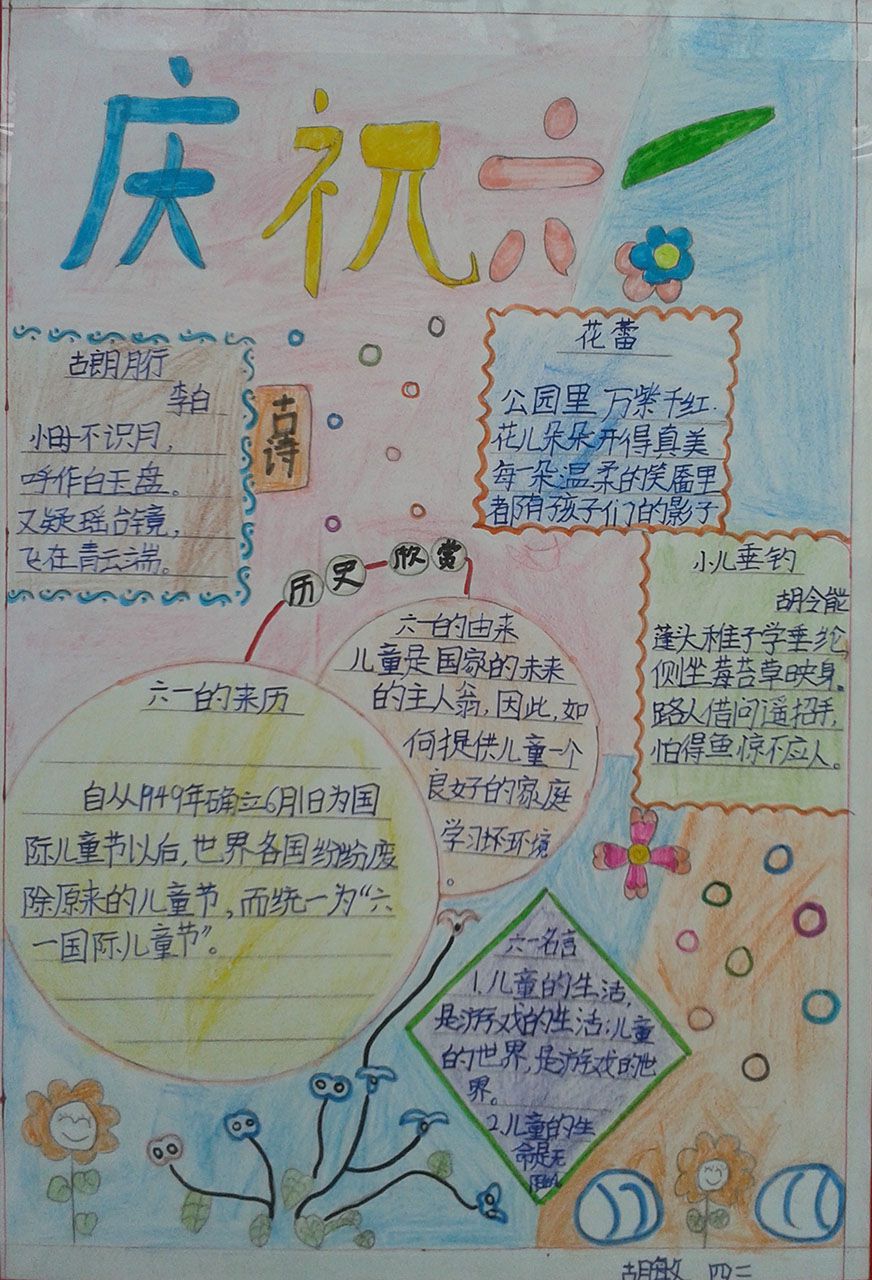 庆祝六一
古朗月行
李白
小时不识月，
呼作白玉盘。
又疑瑶台镜，
飞在青云端。
古诗
花蕾
公园里万紫千红.
花儿朵朵开得真美
每一朵温柔的笑靥里
都有孩子们的影子
小儿垂钓
胡令能
蓬头稚子学垂纶
侧坐莓苔草映身。
路人借问遥招手，
怕得鱼惊不应人。
历史欣赏
六一的由来
儿童是国家的未来
的主人翁，因此，如
何提供儿童一个
良好的家庭
学习坏环境
。
六一的来历
自从1949年确立6月1日为国
际儿童节以后，世界各国纷纷废
除原来的儿童节，而统一为“六
一国际儿童节”。
六一名言
1.儿童的生活，
是游戏的生活；儿童
的世界，是游戏的世
界。
2.儿童的生
命是无
胡敏 四三